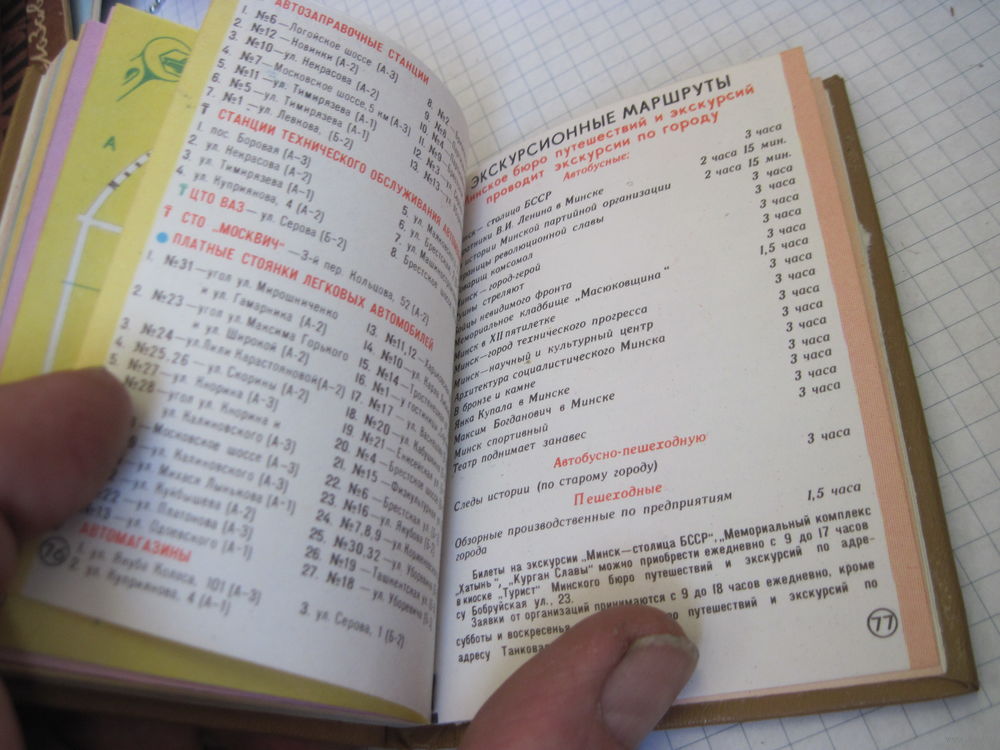 АВТОЗАПРАВОЧНЫЕ СТАНЦИИ
1. №6—Логойское шоссе (А-3)
2. №12—Новинки (А-2)
3. №10—ул. Некрасова (А-2)
4. №7—Московское шоссе, 5 км (А-3)
5. №11—ул. Тимирязева (А-1)
6. №5—ул. Тимирязева (А-1)
7. №1—ул. Левкова, (Б-2)
8. №2
9. №8
10. №4
11. №9
12. №3
13. №13
СТАНЦИИ ТЕХНИЧЕСКОГО ОБСЛУЖИВАНИЯ
1. пос. Боровая (А-3)
2. ул. Некрасова (А-2)
3. ул. Тимирязева (А-1)
4. ул. Куприянова, 4 (А-2)
5. ул.
6. ул.
7. ул.
8. Брестское
ЦТО ВАЗ—ул. Серова (Б-2)
СТО „МОСКВИЧ"—3-й пер. Кольцова, 52 (А-2)
ПЛАТНЫЕ СТОЯНКИ ЛЕГКОВЫХ АВТОМОБИЛЕЙ
1. №31—угол ул. Мирошниченко
и ул. Гамарника (А-2)
2. №23—угол ул. Максима Горького
и ул. Широкой (А-2)
3. №24—ул. Лили Карастояновой (А-2)
4. №25,26—ул. Скорины (А-2)
5. №27—ул. Кнорина (А-3)
№28—угол ул. Кнорина и
ул. Калиновского (А-3)
Московское шоссе (А-3)
ул. Калиновского (А-3)
ул. Михася Лынькова (А-1)
ул. Куйбышева (А-2)
22—ул. Платонова (А-3)
№13—ул. Одоевского (А-1)
13. №11,12
14. №10
15. №14
16. №1—у гостиницы
17. №17
18. №20
19. №21
20. №4—Брестское шоссе
21. №15
22. №6—Брестская ул.
23. №16—ул. Якубова (Б-
24. №7,8,9—ул.
25. №30,32—ул. Уборевича
26. №19—Ташкентская ул.
27. №18—ул. Уборевича (Б-
АВТОМАГАЗИНЫ
1. ул. Якуба Коласа, 101 (А-3)
2. ул. Куприянова, 4 (А-1)
3. ул. Серова, 1 (Б-2)
76
ЭКСКУРСИОННЫЕ МАРШРУТЫ
Минское бюро путешествий и экскурсий
проводит экскурсии по городу
Автобусные:
— столица БССР 3 часа
В.И. Ленина в Минске 2 часа 15 мин.
истории Минской партийной организации 2 часа 15 мин.
революционной славы 3 часа
комсомол 3 часа
Минск—город-герой 3 часа
стреляют 3 часа
Бойцы невидимого фронта 3 часа
Мемориальное кладбище „Масюковщина" 1,5 часа
Минск в XII пятилетке 3 часа
Минск—город технического прогресса 3 часа
Минск—научный и культурный центр 3 часа
Архитектура социалистического Минска 3 часа
В бронзе и камне 3 часа
Янка Купала в Минске 3 часа
Максим Богданович в Минске 3 часа
Минск спортивный
Театр поднимает занавес
Автобусно-пешеходную
Следы истории (по старому городу) 3 часа
Пешеходные
Обзорные производственные по предприятиям
города 1,5 часа
Билеты на экскурсии „Минск—столица БССР", „Мемориальный комплекс
„Хатынь", „Курган Славы" можно приобрести ежедневно с 9 до 17 часов
в киоске „Турист" Минского бюро путешествий и экскурсий по адре-
су Бобруйская ул., 23.
Заявки от организаций принимаются с 9 до 18 часов ежедневно, кроме
субботы и воскресенья путешествий и экскурсий по
адресу
77